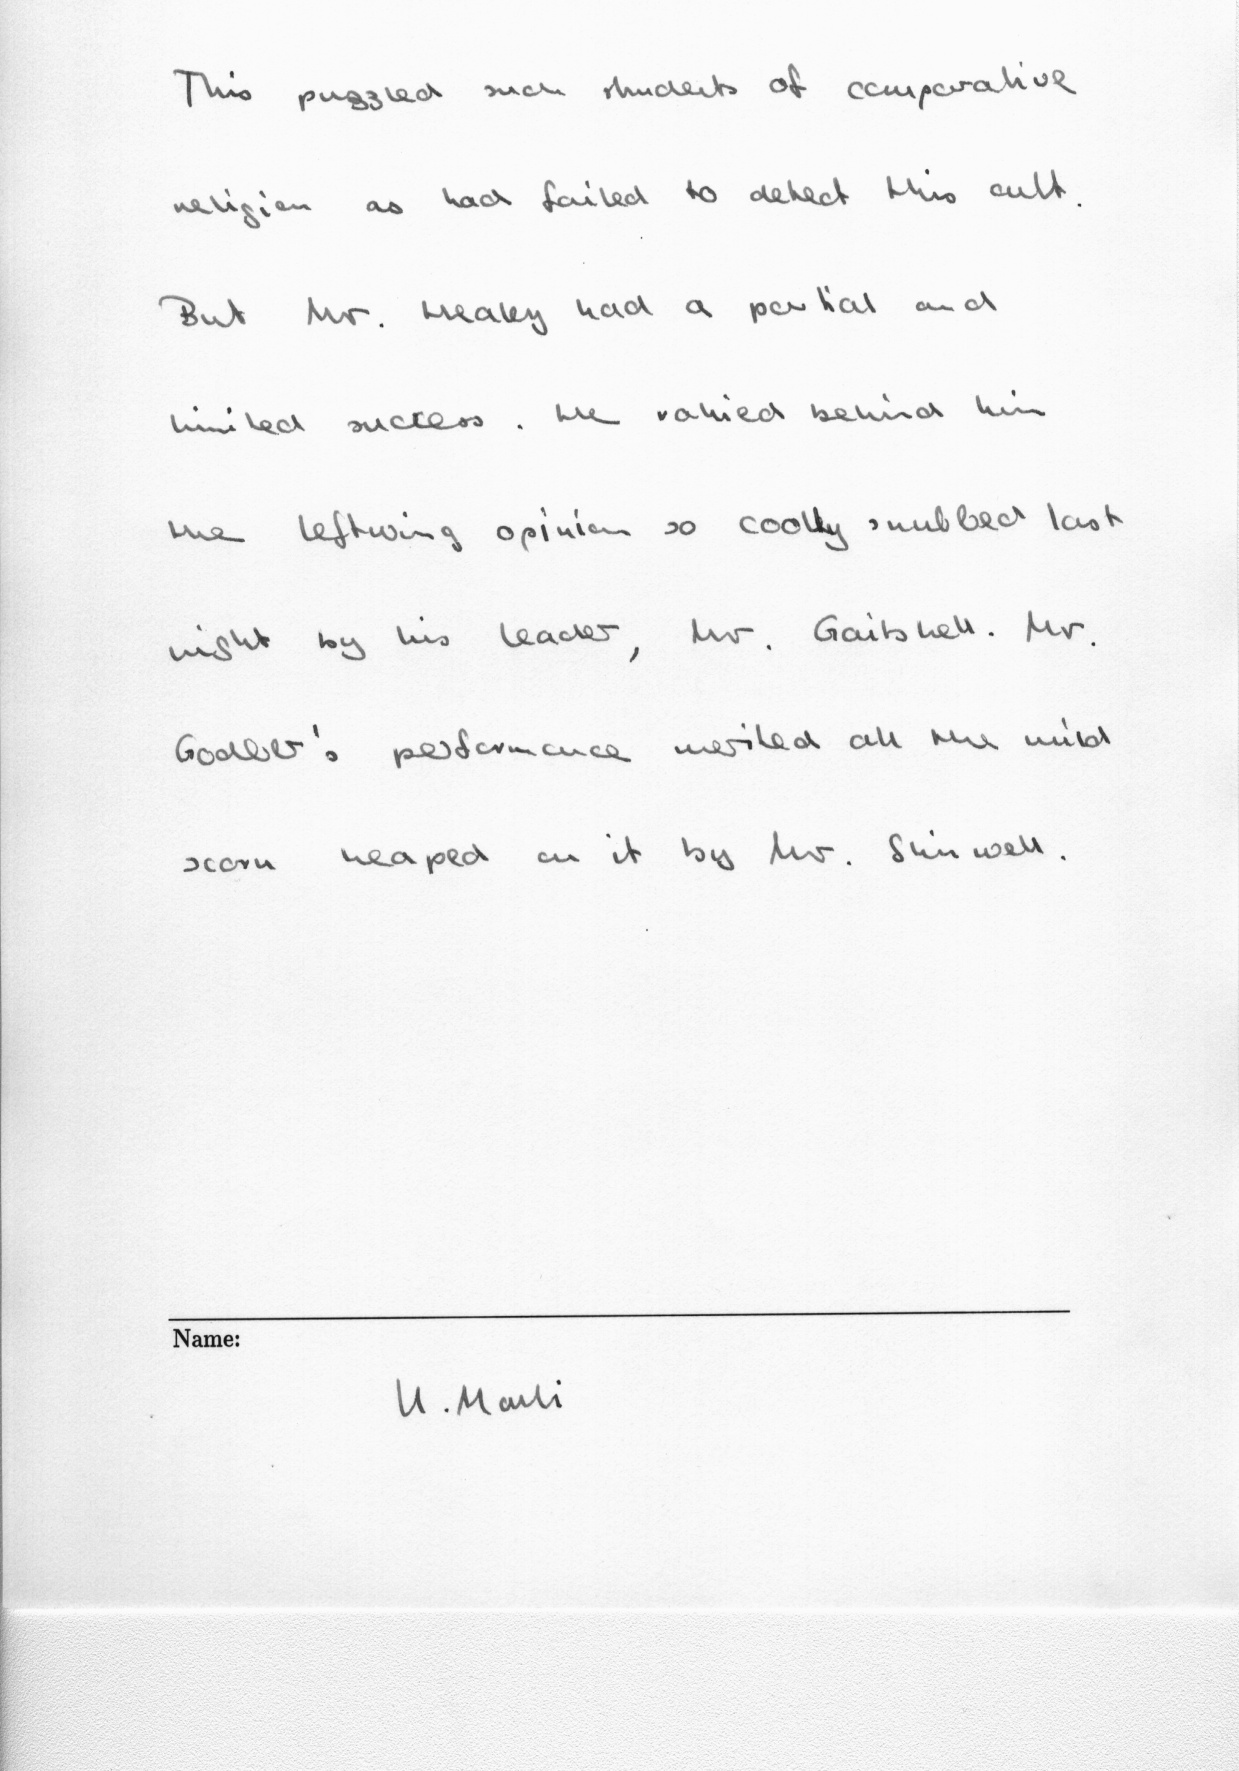 This puzzled such students of comparative
religion as had failed to detect this cult.
But Mr. Healey had a partial and
limited success. He rallied behind him
the leftwing opinion so coolly snubbed last
night by his leader, Mr. Gaitskell. Mr.
Godber's performance merited all the mild
scorn heaped on it by Mr. Shinwell.
Name: